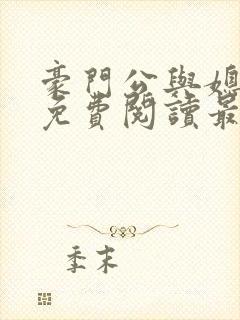 豪門公與媳
免費閱讀最
季末